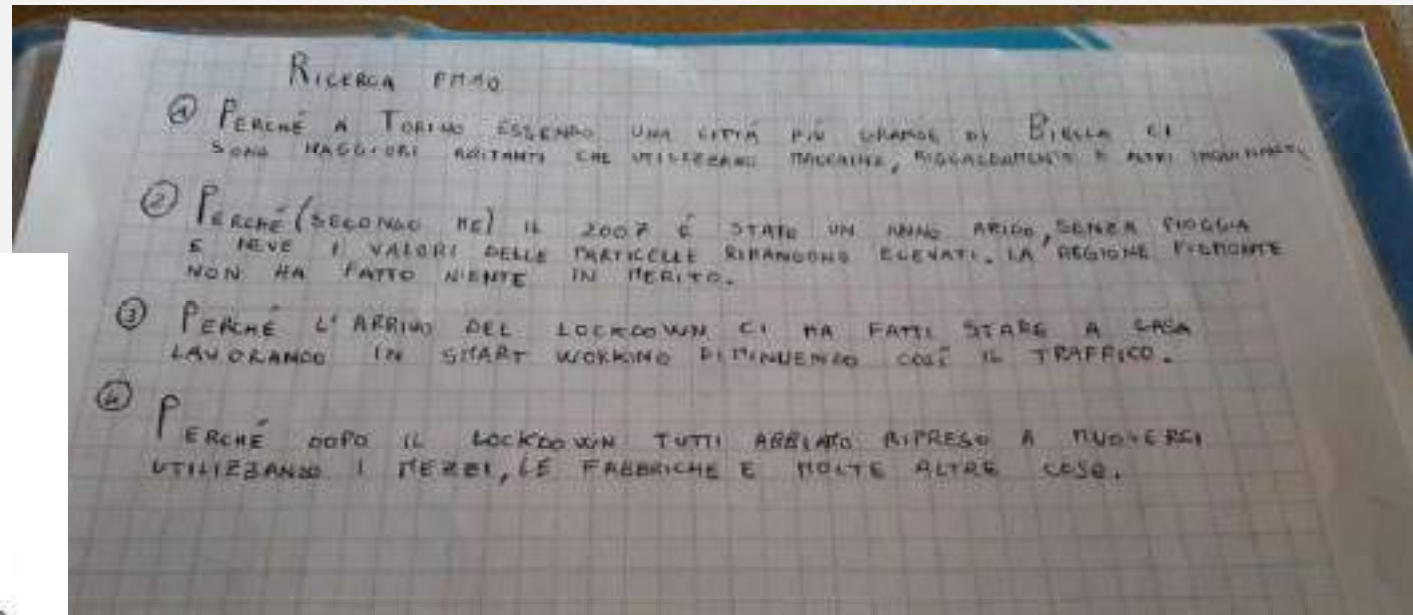 RICERCA PM10
① PERCHÉ A TORINO ESSENDO UNA CITTÁ PIÚ GRANDE DI BIELLA CI
SONO MAGGIORI ABITANTI CHE UTILIZZANO MACCHINE, RISCALDAMENTO E ALTRI INQUINANTI.
② PERCHÉ (SECONDO ME) IL 2007 É STATO UN ANNO ARIDO, SENZA PIOGGIA
E NEVE I VALORI DELLE PARTICELLE RIMANGONO ELEVATI. LA REGIONE PIEMONTE
NON HA FATTO NIENTE IN MERITO.
③ PERCHÉ L'ARRIVO DEL LOCKDOWN CI HA FATTI STARE A CASA
LAVORANDO IN SMART WORKING DIMINUENDO COSÍ IL TRAFFICO.
④ PERCHÉ DOPO IL LOCKDOWN TUTTI ABBIAMO RIPRESO A MUOVERCI
UTILIZZANDO I MEZZI, LE FABBRICHE E MOLTE ALTRE COSE.